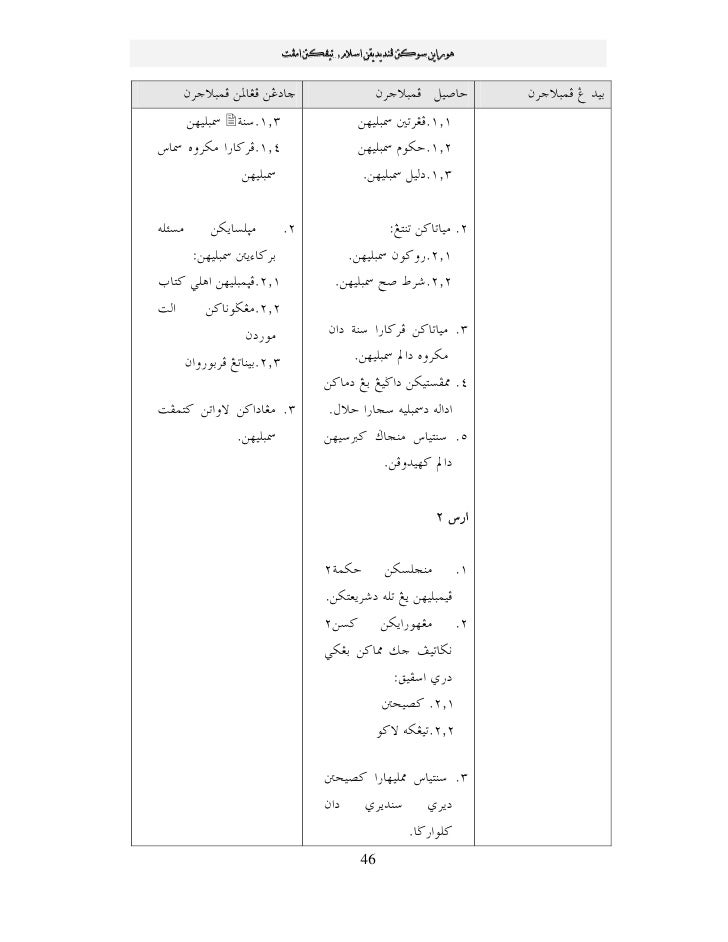 هوراين سوكتن ڤنديديقن اسلام, تيڠكتن امڤت
بيد ڠ ڤمبلاجرن
حاصيل ڤمبلاجرن
جادڠن ڤڠالمن ڤمبلاجرن
١,١.ڤڠرتين سمبليهن
١,٢.حكوم سمبليهن
١,٣.دليل سمبليهن.
٢. مياتاكن تنتڠ:
٢,١.روكون سمبليهن.
٢,٢.شرط صح سمبليهن.
٣. مياتاكن ڤركارا سنة دان
مكروه دالم سمبليهن.
٤. ممڤستيكن داݢيڠ يڠ دماكن
اداله دسمبليه سچارا حلال.
٥. سنتياس منجاݢ كبرسيهن
دالم كهيدوڤن.
ارس ٢
١. منجلسكن حكمة٢
ڤيمبليهن يڠ تله دشريعتكن.
٢. مڠهورايكن كسن٢
نكاتيڤ جك مماكن بڠكي
دري اسڤيق:
٢,١. كصيحتن
٢,٢.تيڠكه لاكو
٣. سنتياس ممليهارا كصيحتن
ديري سنديري دان
كلوارݢا.
١,٣.سنة سمبليهن
١,٤.ڤركارا مكروه سماس
سمبليهن
٢. مڽلسايكن مسئله
بركاءيتن سمبليهن:
٢,١.ڤڽمبليهن اهلي كتاب
٢,٢.مڠݢوناكن الت
مودرن
٢,٣.بيناتڠ ڤربوروان
٣. مڠاداكن لاوتن كتمڤت
سمبليهن.
46